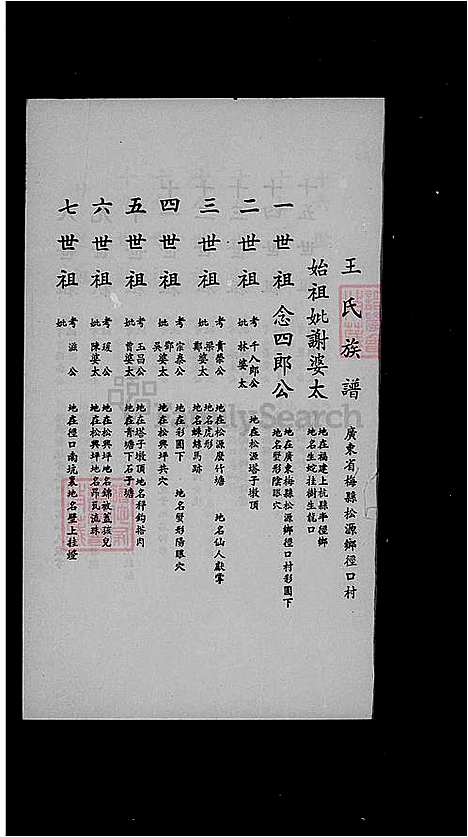 王氏族譜 廣東省梅縣松源鄉徑口村
始祖妣謝婆太 地在福建上杭縣半徑鄉
地名生蛇挂樹生龍口
一世祖 念四郎公 地在廣東梅縣松源鄉徑口村彩圓下
地名熨形陰眼穴
二世祖 考 千八郎公 地在松源塔子墩頂
妣 林婆太
三世祖 考 貴榮公 地在松源麼竹塘 地名仙人獻掌
梁婆太 地名虎形
妣 鄭婆太 地名蛛絲馬跡
四世祖 考 宗泰公 地在彩圓下 地名熨形陽眼穴
妣 吳婆太 地在松興坪共穴
五世祖 考 玉昌公 地在塔子墩頂地名秤鈎搭肉
妣 曾婆太 地在青塘下石子塘
六世祖 考 瑗公 地在松興坪地名錦被蓋孩兒
妣 陳婆太 地在松興坪地名茚瓦流珠
七世祖 考 滋公 地在徑口南坑裏地名壁上挂燈
妣
FamilySearch